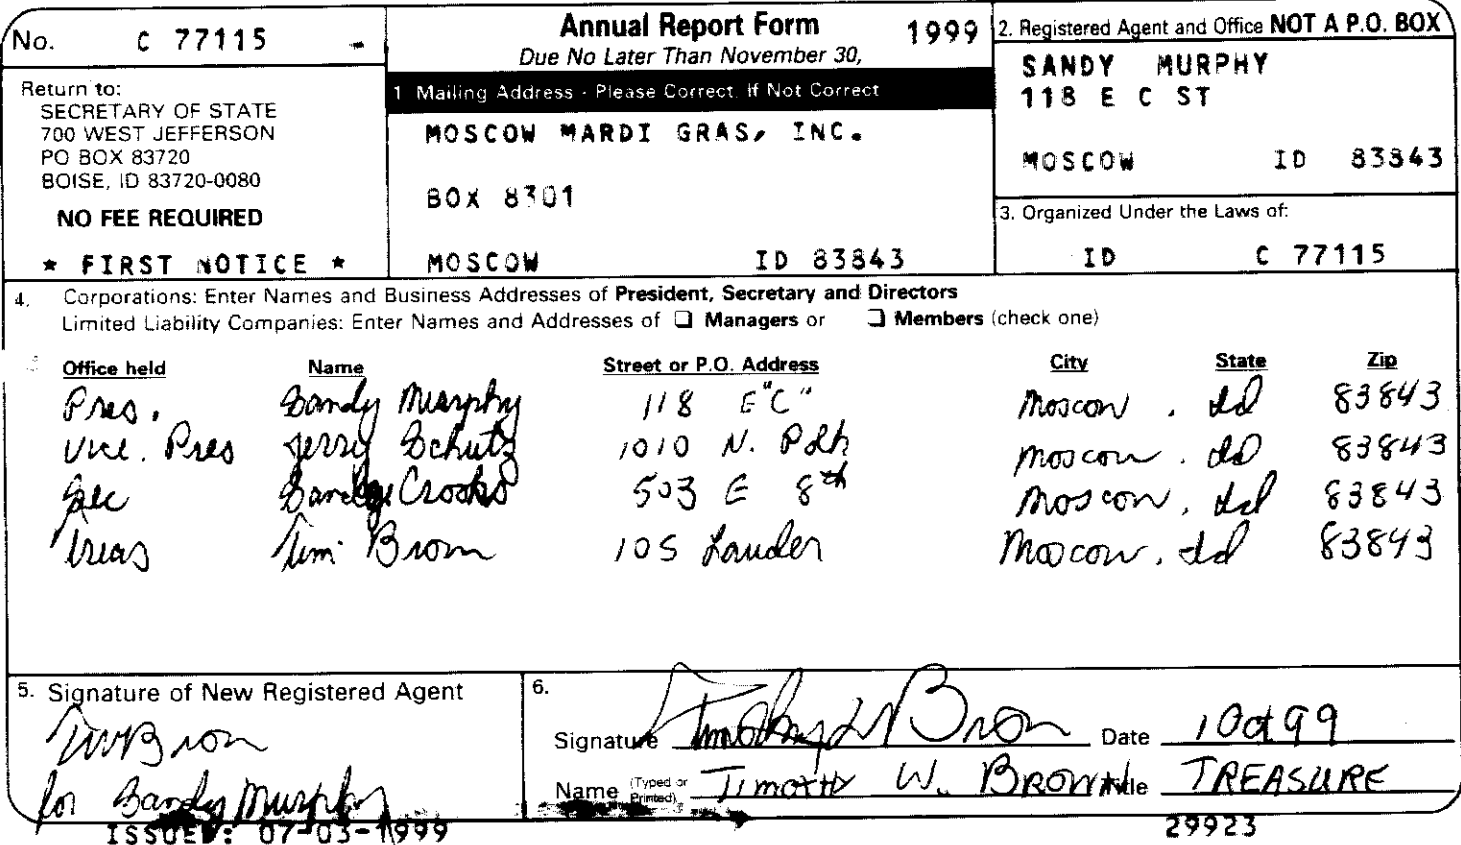 No. C 77115
Return to:
SECRETARY OF STATE
700 WEST JEFFERSON
PO BOX 83720
BOISE, ID 83720-0080
NO FEE REQUIRED
* FIRST NOTICE *
Annual Report Form 1999
Due No Later Than November 30,
1 Mailing Address - Please Correct, If Not Correct
MOSCOW MARDI GRAS, INC.
BOX 8301
MOSCOW ID 83843
2. Registered Agent and Office NOT A P.O. BOX
SANDY MURPHY
118 E C ST
MOSCOW ID 83843
3. Organized Under the Laws of:
ID C 77115
4. Corporations: Enter Names and Business Addresses of President, Secretary and Directors
Limited Liability Companies: Enter Names and Addresses of ☐ Managers or ☐ Members (check one)
Office held Name Street or P.O. Address City State Zip
Pres. Sandy Murphy 118 E "C" Moscow, Id 83843
Vice. Pres Jerry Schutz 1010 N. Polk Moscow. Id 83843
Sec Crooks 503 E 8th Moscow, Id 83843
Treas Tim Brown 105 Lauder Moscow, Id 83843
5. Signature of New Registered Agent
TWBrown
for Sandy Murphy
6.
Signature Timothy W Brown Date 1 Oct 99
Name (Typed or Printed) Timothy W. BROWN Title TREASURE
ISSUED: 07-03-1999
29923